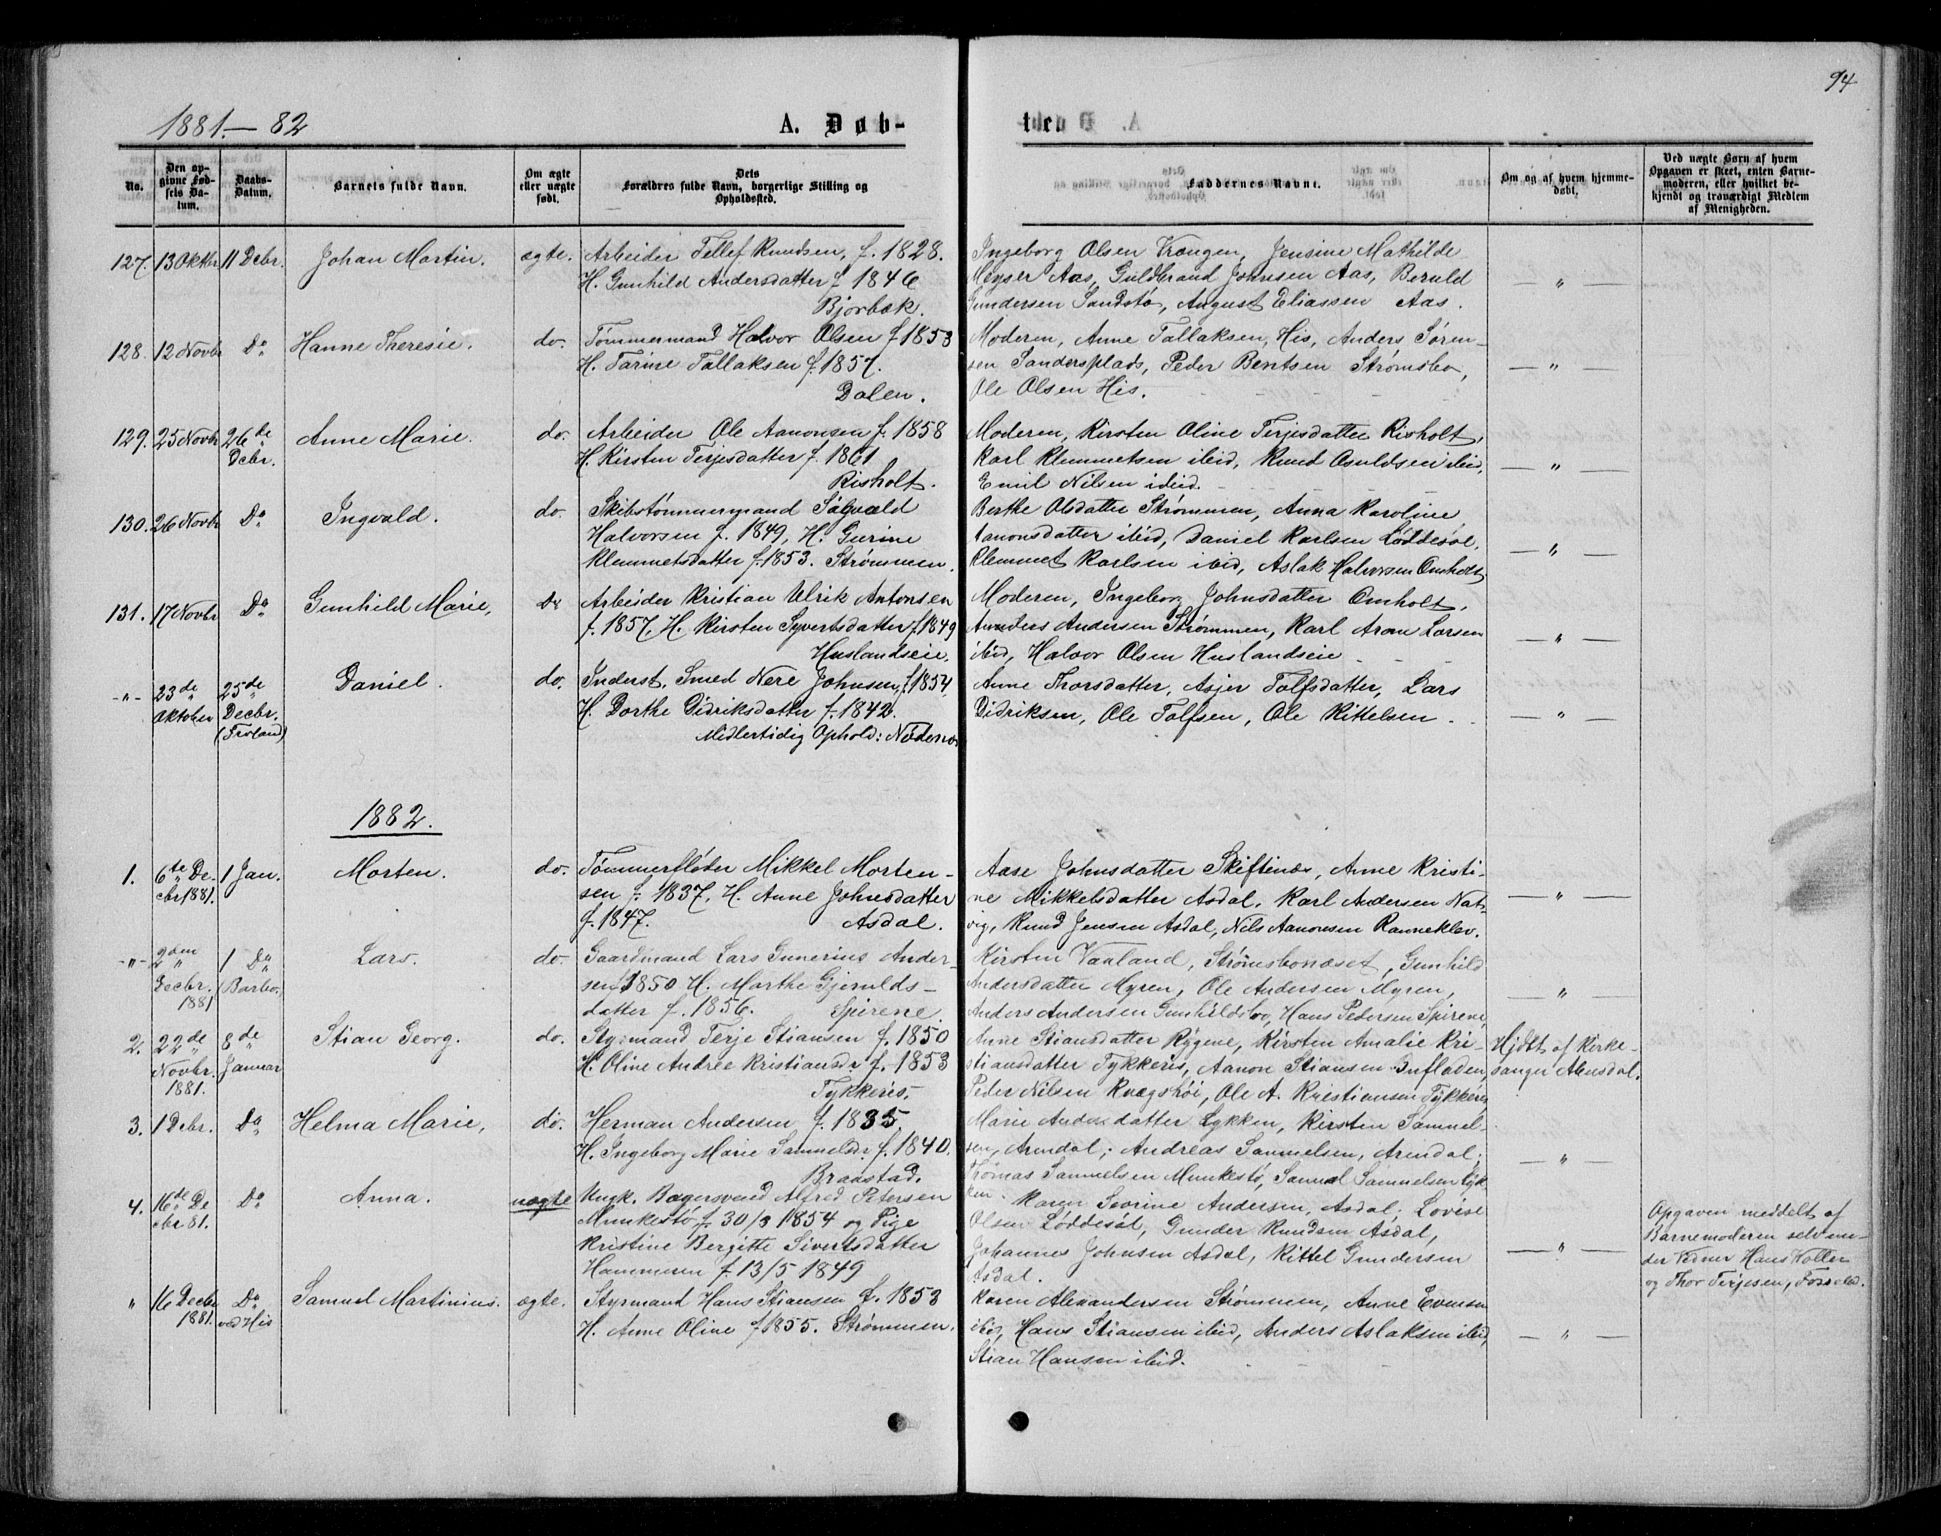 94
1881.-82
A. Døb-
te.
No.
Den op-
givne Fød-
sels Da-
tum.
Daabs-
Datum.
Barnets fulde Navn.
Om ægte
eller uægte
født.
Dets
Forældres fulde Navn, borgerlige Stilling og
Opholdssted.
Faddernes Navne.
Om og af hvem hjemme-
døbt.
Ved uægte Børn af hvem
Opgaven er skeet, enten Barne-
moderen, eller hvilket be-
kjendt og troværdigt Medlem
af Menigheden.
127. 13 Oktbr. 11 Debr. Johan Martin. ægte.
Arbeider Tellef Knudsen, f. 1828.
H. Gunhild Andersdatter f 1846
Bjorbæk.
Ingeborg Olsen Vrængen, Jensine Mathilde
Heyser Aas, Guldbrand Johnsen Aas, Beruld
Gundersen Sandstø, August Eliassen Aas.
— " —
128. 12 Novbr Do Hanne Theresie. do.
Tømmermand Halvor Olsen f 1853
H. Tarine Tallaksen f. 1857.
Dalen.
Moderen, Anne Tallaksen, His, Anders Søren-
sen Sandersplads, Peder Bentsen Strømsbo,
Ole Olsen His.
— " —
129. 25 Novbr 26de Debr. Anne Marie. do.
Arbeider Ole Aanonsen f. 1858
H. Kirsten Terjesdatter f. 1861
Risholt.
Moderen, Kirsten Oline Terjesdatter Risholt,
Karl Klemmetsen ibid, Knud Osuldsen ibid,
Emil Nilsen ibid.
— " —
130. 26 Novbr Do Ingvald. do.
Skibstømmermand Søgvald
Halvorsen f. 1849, H. Gurine
Klemmetsdatter f. 1853. Strømmen.
Berthe Olsdatter Strømmen, Anna Karoline
Aanonsdatter ibid, Daniel Karlsen Løddesøl,
Klemmet Karlsen ibid, Aslak Halvorsen Omholt
— " —
131. 17 Novbr Do Gunhild Marie, Do
Arbeider Kristian Ulrik Antonsen
f. 1857. H. Kirsten Syvertsdatter f. 1849
Huslandseie.
Moderen, Ingeborg Johnsdatter Omholt,
Anders Andersen Strømmen, Karl Aron Larsen
ibid, Halvor Olsen Huslandseie
— " —
-"- 23de Oktober 25de Decbr. (Froland) Daniel. do.
Inderst, Smed Nere Johnsen, f. 1854
H. Dorthe Didriksdatter f. 1842.
Midlertidig Ophold: Nedenes
Anne Thorsdatter, Asjer Tolfsdatter, Lars
Didriksen, Ole Tolfsen, Ole Kittelsen.
— " —
1882.
1. 6te De-
cbr 1881. 1 Jan. Morten. do.
Tømmerfløder Mikkel Morten-
sen f. 1837, H. Anne Johnsdatter
f. 1847. Asdal.
Aase Johnsdatter Skiftenæs, Anne Kristi-
ne Mikkelsdatter Asdal, Karl Andersen Nat-
vig, Knud Jensen Asdal, Nils Aanonsen Ranneklev.
— " —
-"- 2den Decbr. 1881 1 Do (Barbo.) Lars. do.
Gaardmand Lars Gunerius Ander-
sen f 1850 H. Marthe Gjerulds-
datter f. 1856. Spirene.
Kirsten Vaaland, Strømsbonæset, Gunhild
Andersdatter Myren, Ole Andersen Myren,
Anders Andersen Gunhildsbo, Hans Pedersen Spirene,
— " —
2. 22de Novbr. 1881. 8de Januar Stian Georg. do.
Styrmand Terje Stiansen f. 1850
H. Oline Andrée Kristiansdr f. 1853
Tykkeris.
Anne Stiansdatter Rygene, Kirsten Amalie Kri-
stiansdatter Tykkeris, Aanon Stiansen Indfladen,
Peder Nilsen Kragshøi, Ole A. Kristiansen Tykkeris
Hjdbt af Kirke-
sanger Aensdal.
3. 1 Debr. Do Helma Marie, do.
Herman Andersen f. 1835
H. Ingeborg Marie Samuelsdr. f. 1840.
Braastad.
Marie Andersdatter Lykken, Kirsten Samuel-
sen, Arendal; Andreas Samuelsen, Arendal;
Thomas Samuelsen Munkestø, Samuel Samuelsen Lyk-
ken.
— " —
4. 16de De
cbr 81. Do Anna. uægte
Ungk. Bagersvend Alfred Petersen
Munkestø f. 30/3 1854 og Pige
Kristine Bergitte Sivertsdatter
Hammeren f. 13/5 1849
Karen Severine Andersen, Asdal; Lovise
Olsen Løddesøl, Gunder Knudsen Asdal,
Johannes Johnsen Asdal, Kittel Gundersen
Asdal.
— " —
Opgaven meddelt af
Barnemoderen selv un-
der Vidner Hans Koller
og Thor Terjesen, Fosseld.
" 16 Decbr 1881. Do ved His Samuel Martinius. ægte.
Styrmand Hans Stiansen f. 1853
H. Anne Oline f 1855. Strømmen.
Karen Alexandersen Strømmen, Anne Evensen
ibid, Hans Stiansen ibid, Anders Aslaksen ibid,
Stian Hansen ibid.
— " —